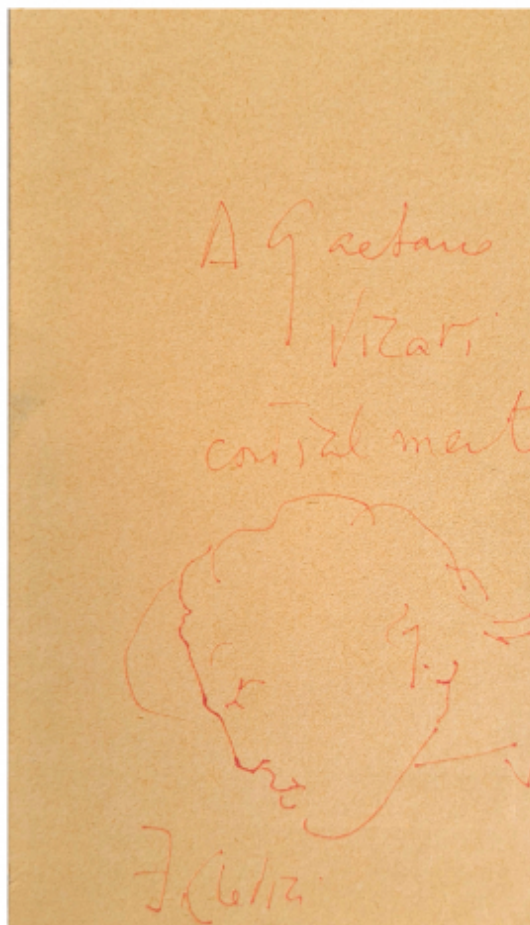 A Gaetano
Vicari
cordialment
F. Clerici